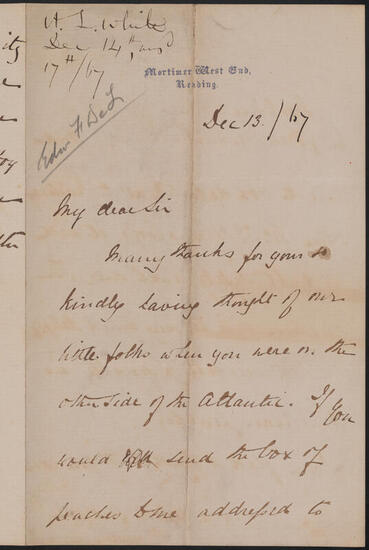 H. L. White
Dec 14th, and
17th/67
Mortimer West End,
Reading.
Dec 13./67
My dear Sir
Many thanks for your so
kindly having thought of our
little folks when you were on the
other side of the Atlantic. If you
would send the box of
peaches to me addressed to